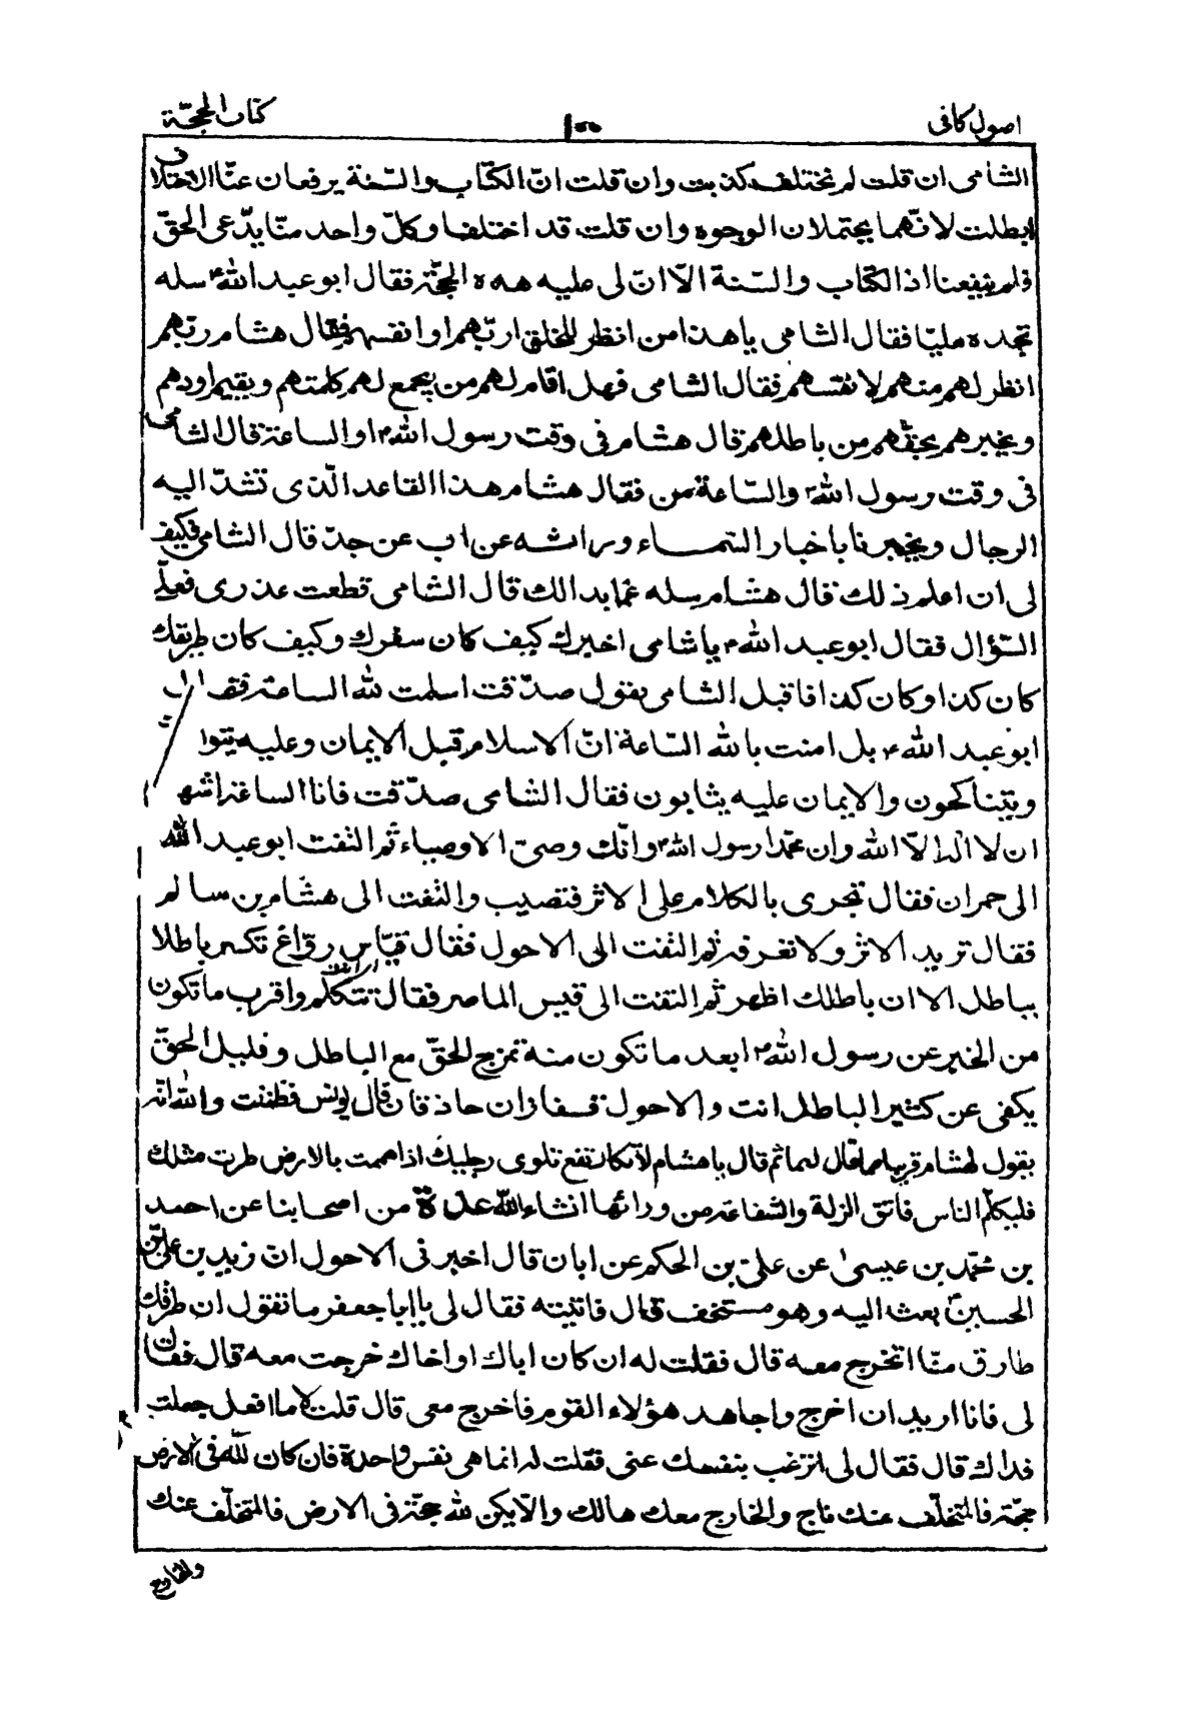 اصول كافى
١٠٠
كتاب الحجّة
الشامى ان قلت لم نختلف كذبت وان قلت انّ الكتاب والسّنة يرفعان عنّا الاختلاف
ابطلت لانّهما يحتملان الوجوه وان قلت قد اختلفنا وكلّ واحد منّا يدّعى الحقّ
فلم ينفعنا اذا الكتاب والسّنة الّا انّ لى عليه هذه الحجّة فقال ابو عبد الله ع سله
تجده مليّا فقال الشامى يا هذا من انظر للخلق اربّهم او انفسهم فقال هشام ربّهم
انظر لهم منهم لانفسهم فقال الشامى فهل اقام لهم من يجمع لهم كلمتهم ويقيم اودهم
ويخبرهم بحقّهم من باطلهم قال هشام فى وقت رسول الله ص او الساعة قال الشامى
فى وقت رسول الله ص والسّاعة من فقال هشام هذا القاعد الّذى تشدّ اليه
الرجال ويخبرنا باخبار السّماء وراثة عن اب عن جدّ قال الشامى فكيف
لى ان اعلم ذلك قال هشام سله عمّا بدا لك قال الشامى قطعت عذرى فعلىّ
السّؤال فقال ابو عبد الله ع يا شامى اخبرك كيف كان سفرك وكيف كان طريقك
كان كذا وكان كذا فاقبل الشامى يقول صدّقت اسلمت لله الساعة فقال
ابو عبد الله ع بل امنت بالله السّاعة انّ الاسلام قبل الايمان وعليه يتوا
ويتناكحون والايمان عليه يثابون فقال الشامى صدّقت فانا الساعة اشهد
ان لا اله الّا الله وان محمّدا رسول الله ص وانّك وصىّ الاوصياء ثم التفت ابو عبد الله
الى حمران فقال تجرى بالكلام على الاثر فتصيب والتفت الى هشام بن سالم
فقال تريد الاثر ولا تعرفه ثم التفت الى الاحول فقال قيّاس روّاغ تكسر باطلا
بباطل الا ان باطلك اظهر ثم التفت الى قيس الماصر فقال تتكلّم واقرب ما تكون
من الخبر عن رسول الله ص ابعد ما تكون منه تمزج الحقّ مع الباطل وقليل الحقّ
يكفى عن كثير الباطل انت والاحول قفازان حاذقان قال يونس فظننت والله انّه
يقول لهشام قريبا مما قال لهما ثم قال يا هشام لا تكاد تقع تلوى رجليك اذا هممت بالارض طرت مثلك
فليكلّم الناس فاتق الزلة والشفاعة من ورائها انشاء الله عدة من اصحابنا عن احمد
بن محمّد بن عيسى عن علىّ بن الحكم عن ابان قال اخبرنى الاحول انّ زيد بن علىّ بن
الحسين ع بعث اليه وهو مستخف قال فاتيته فقال لى يا ابا جعفر ما تقول ان طرقك
طارق منّا اتخرج معه قال فقلت له ان كان اباك او اخاك خرجت معه قال فقال
لى فانا اريد ان اخرج واجاهد هؤلاء القوم فاخرج معى قال قلت لا ما افعل جعلت
فداك قال فقال لى اترغب بنفسك عنى فقلت له انما هى نفس واحدة فان كان لله فى الارض
حجّة فالمتخلّف عنك ناج والخارج معك هالك والّا يكن لله حجّة فى الارض فالمتخلّف عنك
والخارج